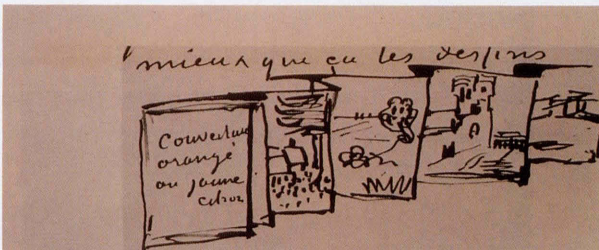 mieux que ça les dessins
Couverture
orangé
ou jaune
citron